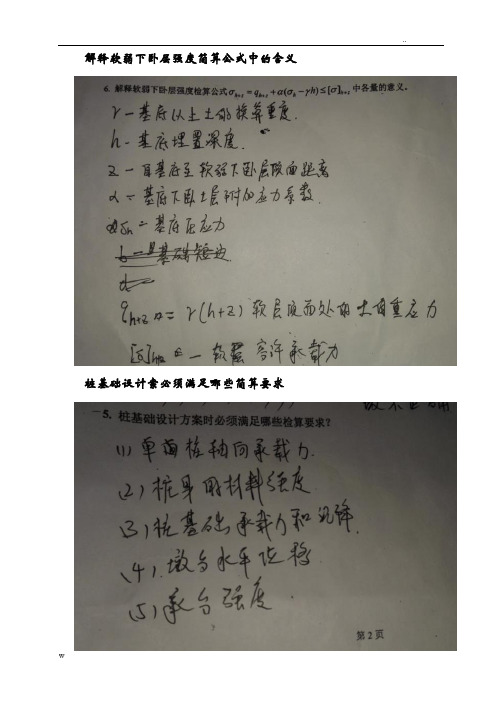 ..
解释软弱下卧层强度简算公式中的含义
6. 解释软弱下卧层强度检算公式σₕ₊z = qₕ₊z + α(σₕ − γh) ≤ [σ]ₕ₊z 中各量的意义。
γ — 基底以上土的换算重度.
h - 基底埋置深度.
z — 自基底至软弱下卧层顶面距离
α = 基底下卧土层附加应力系数.
σh = 基底压应力
b — 基础短边
qh+z = γ(h+z) 软层顶面处的土自重应力
[σ]h+z — 软层 容许承载力
桩基础设计需必须满足哪些简算要求
5. 桩基础设计方案时必须满足哪些检算要求?
(1) 单桩轴向承载力.
(2) 桩身用材料强度
(3) 桩基础承载力和沉降.
(4). 墩台水平位移.
(5) 承台强度.
第2页
w